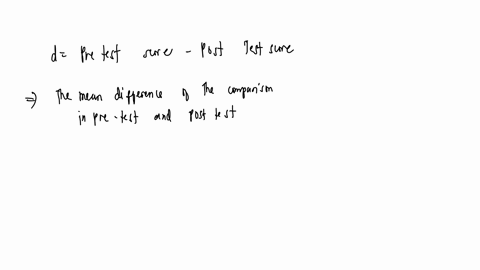 d = Pre test score - Post Test score
⇒ The mean difference of the comparism
in pre-test and post test